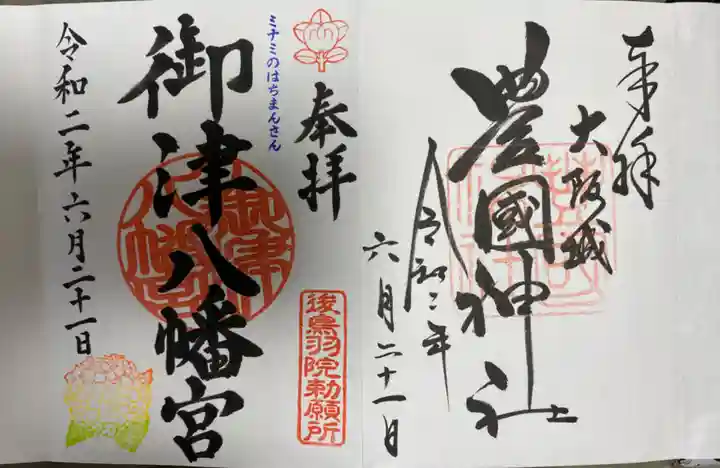 奉拝
大阪城
豊國神社
令和二年
六月二十一日
ミナミのはちまんさん
奉拝
後鳥羽院勅願所
御津八幡宮
御津八幡宮
令和二年六月二十一日